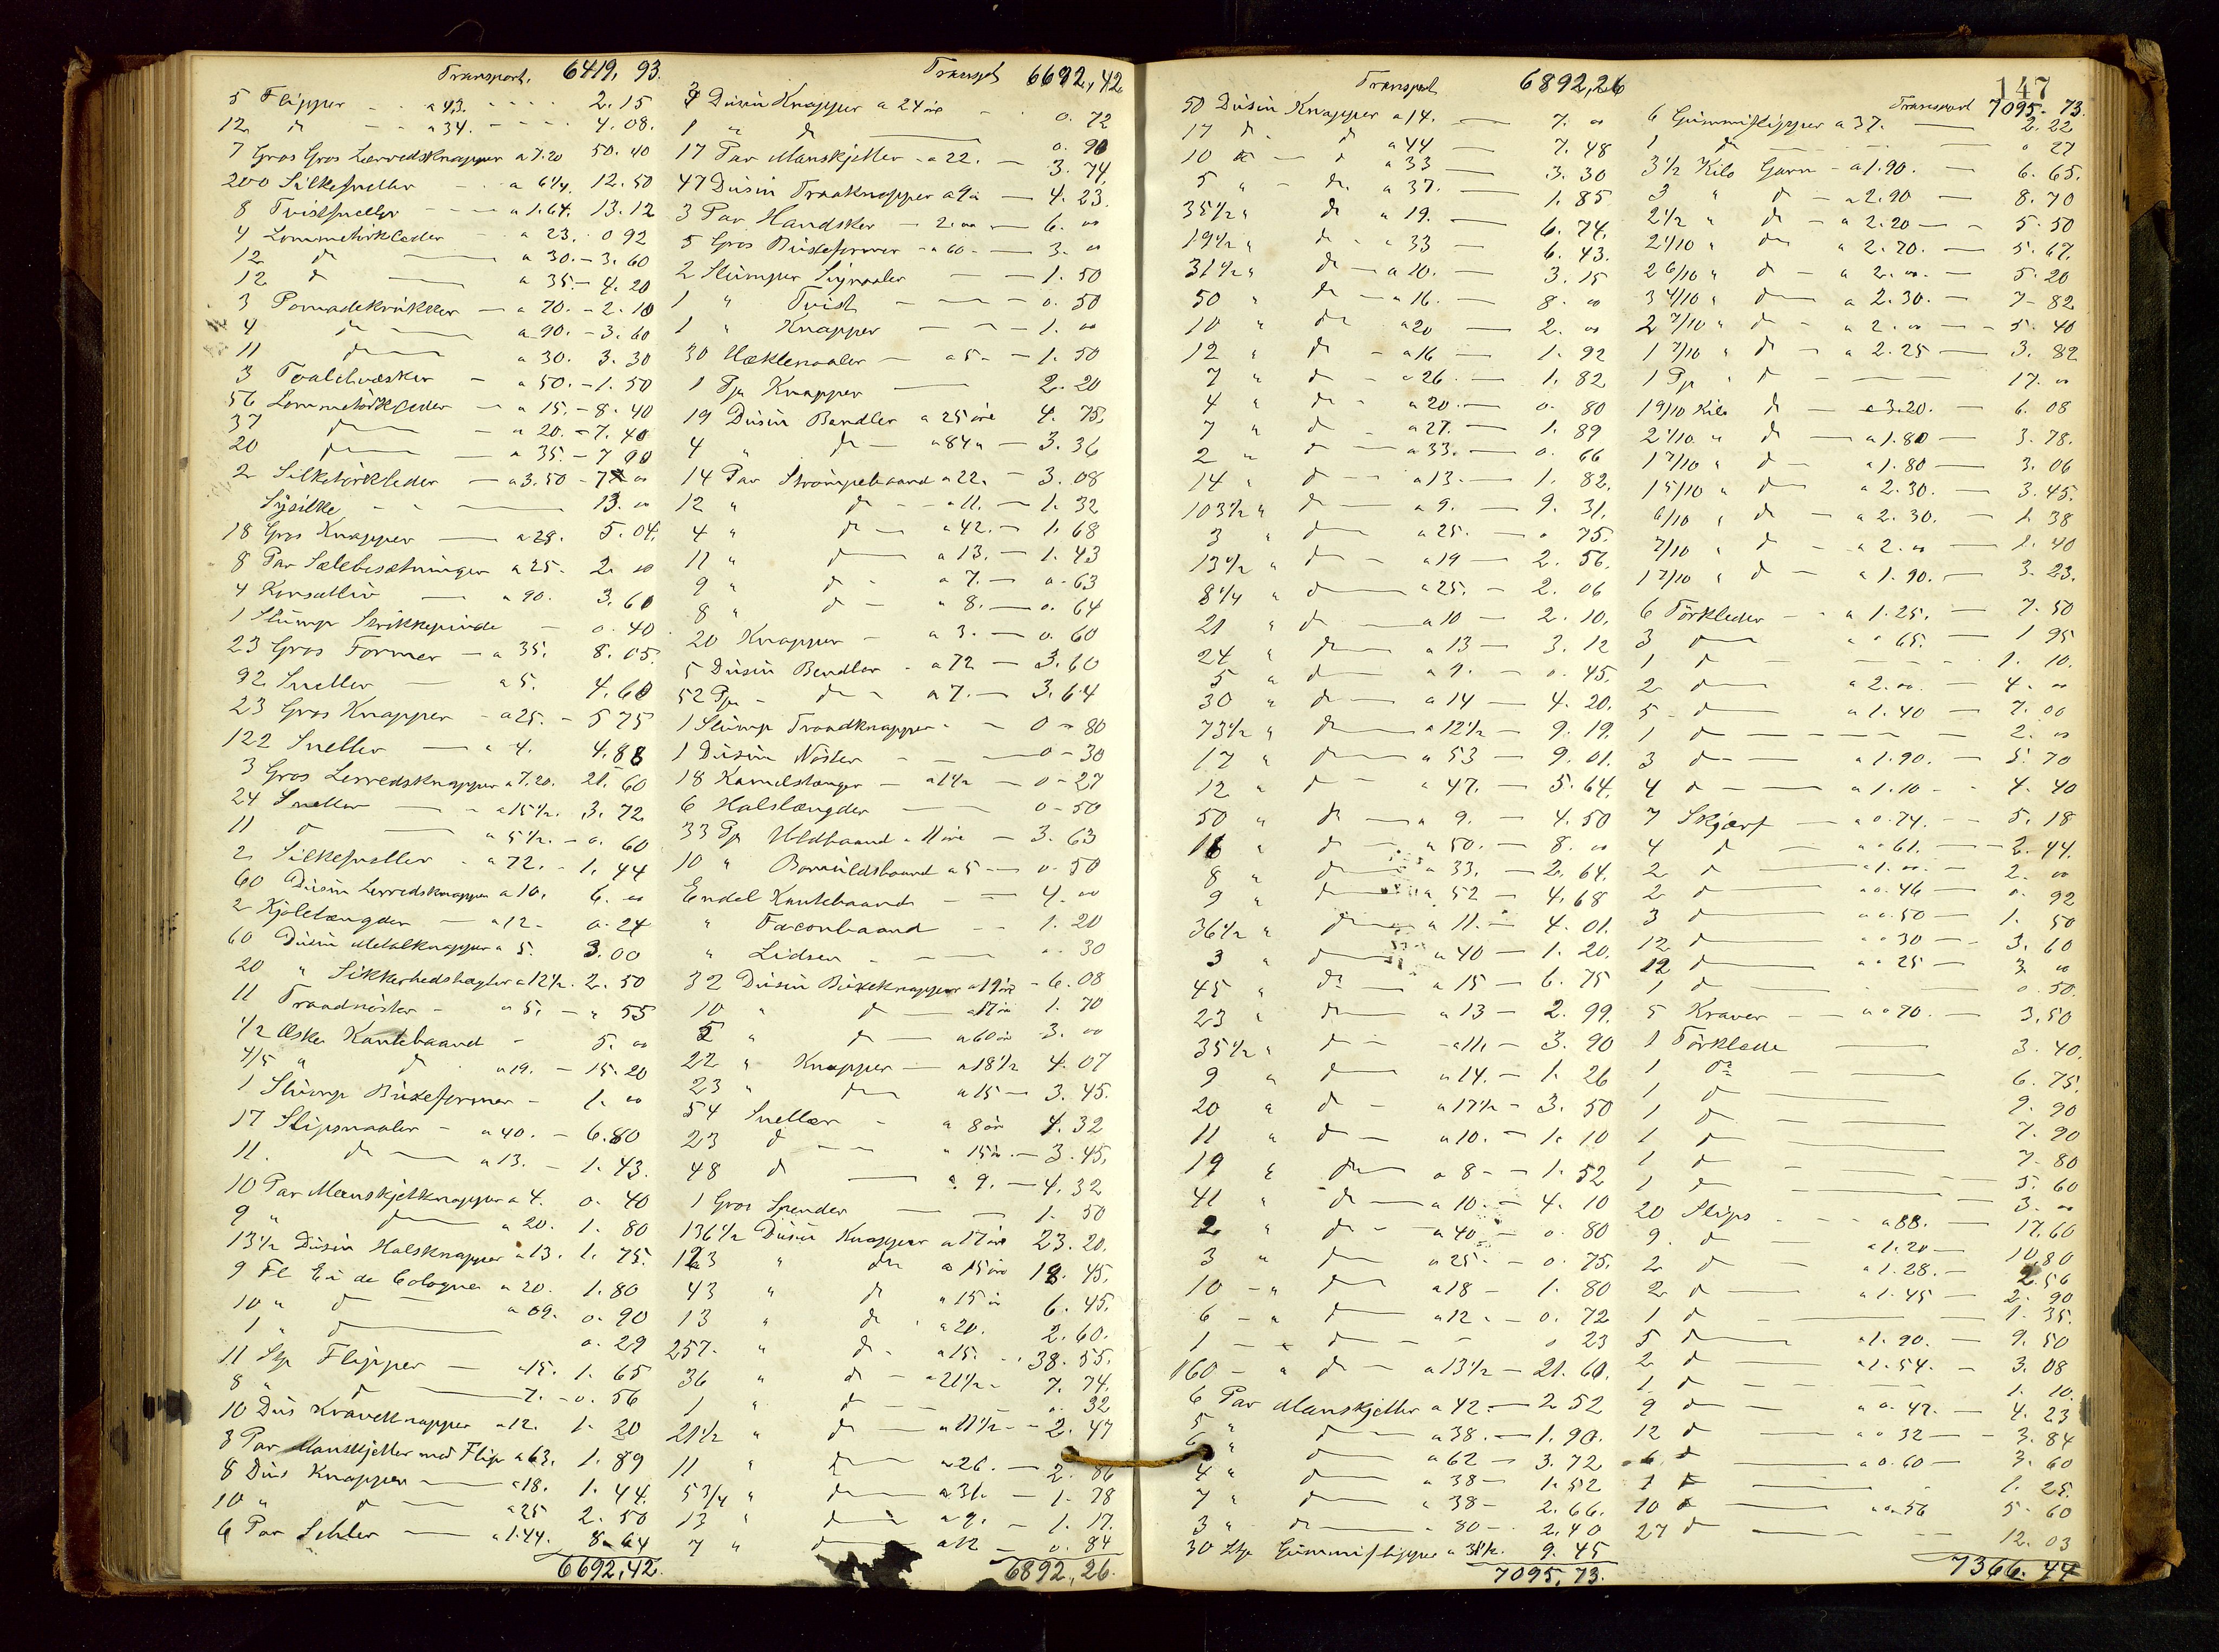 Transport. 6419, 93.
5 Flipper - - a 43. - - - - 2. 15
12 d - - a 34. - - - - 4. 08.
7 Gros Gros Lærredsknapper a 7.20 50. 40
200 Silkesneller - - a 6 1/4. 12. 50
8 Tvistsneller - - - a 1.64. 13. 12
4 Lommetörkleder - a 23. 0 92
12 d — a 30. - 3. 60
12 d — a 35. - 4. 20
3 Pomadekrukker — a 70. - 2. 10
4 d — a 90. - 3. 60
11 d — a 30. 3. 30
3 Toaletvæsker - a 50. - 1. 50
56 Lommetörkleder — a 15. - 8. 40
37 d — a 20. - 7. 40
20 d — a 35. - 7 00
2 Silketörkleder — a 3.50 - 7 00
Sysilke - - — 13. 00
18 Gros Knapper — a 28. 5. 04.
8 Par Sælebesætninger a 25. 2. 00
4 Korsetliv — a 90. 3. 60
1 Stump Strikkepinde - 0. 40
23 Gros Former — a 35. 8. 05.
92 Sneller — a 5. 4. 60
23 Gros Knapper - a 25. - 5 75
122 Sneller — a 4. 4. 88
3 Gros Lerredsknapper a 7.20. 21. 60
24 Sneller — a 15 1/2. 3. 72
11 d — a 5 1/2. - 0. 60
2 Silkesneller - a 72. - 1. 44
60 Düsin Lerredsknapper a 10. 6. 00
2 Kjolelængder — a 12 - 0. 24
60 Düsin Metalknapper a 5. 3. 00
20 " Sikkerhedshægter a 12 1/2. 2. 50
11 Traadnöster - a 5. - " 55
1/2 Æske Kantebaand - 5. 00
4/5 " d - a 19. - 15. 20
1 Stump Büxeformer - 1. 00
17 Slipsnaaler - a 40. - 6. 80
11. d — a 13. - 1. 43.
10 Par Manskjetknapper a 4. 0. 40
9 " d — a 20. 1. 80
13 1/2 Düsin Halsknapper a 13. 1. 75.
9 Fl Eü de Cologne a 20. 1. 80
10 " d — a 09. 0. 90
1 " d — 0. 29
11 Stp Flipper — a 15. 1. 65
8 " d — 7. - 0. 56
10 Düs Kraveknapper a 12. 1. 20
3 Par Manskjetter med Flip a 63. 1. 89
8 Düs Knapper — a 18. 1. 44.
10 " d — a 25 2. 50
6 Par Seler — a 1.44. 8. 64
6692, 42.
Transpt 6692, 42
3 Düsin Knapper a 24 öre - 0. 72
1 " d — 0. 90
17 Par Manskjetter - a 22. - 3. 74.
47 Düsin Træknapper a 9 ö — 4. 23.
3 Par Handsker — 2. 00 — 6. 00
5 Gros Büxeformer - a 60 - — 3. 00
2 Stümper Synaaler — — 1. 50
1 " Tvist — — 0. 50
1 " Knapper — — 1. 00
30 Hæklenaaler — a 5 - — 1. 50
1 Pp Knapper — 2. 20
19 Düsin Bændler a 25 öre 4. 75.
4 " d — a 84 " — 3. 36
14 Par Strömpebaand a 22. - 3. 08
12 " d - - a 11. — 1. 32
4 " d — a 42. — 1. 68
11 " d — a 13. — 1. 43
9 " d - a 7. — 0. 63
8 " d — a 8. — 0. 64
20 Knapper — a 3. — 0. 60
5 Düsin Bendler - a 72 — 3. 60
52 Pp - d - a 7. — 3. 64
1 Stümp Traadknapper - - 0 - 80
1 Düsin Nöster - — 0 - 30
18 Kamelslænger — a 1 1/2 — 0 - 27
6 Halslængder — 0 - 50
33 Pp Uldbaand a 11 öre — 3. 63
10 " Bomüldsbaand a 5 — 0. 50
Endel Kantebaand — — 4. 00
" Faconbaand - - 1. 20
" Lidser - — 0. 30
32 Düsin Büxeknapper a 19 öre - 6. 08
10 " d — a 17 ör 1. 70
5 " d — a 60 ör 3. 00
22 " Knapper — a 18 1/2 4. 07
23 " d — a 15 — 3. 45.
54 Sneller - a 8 ör 4. 32
23 d - - " 15 ö. — 3. 45.
48 d — a 9. — 4. 32
1 Gros Spender — — 1. 50
136 1/2 Düsin Knapper a 17 öre 23. 20.
123 " d a 15 öre 18. 45.
43 " d " 15 ör 6. 45.
13 " d - a 20. 2. 60.
257. " d - a 15. - 38. 55.
36 " d — a 21 1/2 - 7. 74.
1 " d — — 0. 32
21 1/2 " d — a 11 1/2 - - 2. 47
11 " d — a 26. — 2. 86
5 3/4 " d — a 31. — 1. 78
13 " d — a 9. — 1. 17.
7 " d — a 12 — 0. 84
6892, 26.
Transpt 6892, 26
50 Düsin Knapper a 14. — 7. 00
17 d - d a 44 — 7. 48
10 d — d a 33 — 3. 30
5 " — d a 37. — 1. 85
35 1/2 " d a 19. — 6. 74.
19 1/2 " d - a 33 — 6. 43.
31 1/2 " d — a 10. — 3. 15
50 " d — a 16. — 8. 00
10 " d a 20 — 2. 00
12 " d - a 16 — 1. 92
7 " d - a 26. — 1. 82
4 " d - a 20. — 0. 80
7 " d - a 27. — 1. 89
2 " d — a 33. — 0. 66
14 " d — a 13. — 1. 82.
103 1/2 " d — a 9. - 9. 31.
3 " d a 25. — 0 75.
13 1/2 " d — a 19 — 2. 56.
8 1/4 " d — a 25. — 2. 06
21 " d — a 10 — 2. 10.
24 " d — a 13 — 3. 12
5 " d — a 9. — 0. 45.
30 " d — a 14 — 4. 20.
73 1/2 " d — a 12 1/2 — 9. 19.
17 " d — a 53 — 9. 01.
12 " d — a 47. — 5. 64.
50 " d — a 9. — 4. 50
16 " d — a 50. — 8. 00
8 " d — a 33. — 2. 64.
9 " d — a 52 — 4. 68
36 1/2 " d — a 11. — 4. 01.
3 " d — a 40 — 1. 20.
45 " d — a 15 — 6. 75
23 " d — a 13 — 2. 99.
35 1/2 " d — - a 11. — 3. 90
9 " d — a 14. — 1. 26
20 " d - a 17 1/2 — 3. 50
11 " d — a 10. — 1. 10
19 " d — a 8 - - 1. 52
41 " d — a 10. — 4. 10
2 " d - - a 40 — 0. 80
3 " d — a 25 - - 0. 75.
10 - " d — a 18 — 1. 80
6 - " d — a 12. — 0. 72
1 - " d — - 0 23
160 - " d — a 13 1/2 — 21. 60.
6 Par Manskjetter a 42. — 2. 52
5 " d — a 38. — 1. 90.
6 " d — a 62 — 3. 72
4 " d — a 38 — 1. 52
7 " d — a 38 — 2. 66.
3 " d — a 80 — 2. 40
30 Stp Gümmiflipper a 31 1/2. 9. 45
7095, 73.
147
Transport 7095. 73.
6 Gümmiflipper a 37. — 2. 22
1 d - - - 0 27
3 1/2 Kilo Garn - a 1. 90. — 6. 65.
3 " d — a 2. 90 — 8. 70
2 1/2 " d — a 2. 20 — - 5. 50
2 1/10 " d a 2. 70. — 5. 67.
2 6/10 " d — a 2. 00. — 5. 20
3 4/10 " d — a 2. 30. — 7 - 82
2 7/10 " d — a 2. 00 — - 5. 40
1 7/10 " d — a 2. 25 — 3. 82
1 Pp " d - — 17. 00
1 9/10 Kilo d — a 3. 20. - 6. 08
2 1/10 " d — a 1. 80 — 3. 78.
1 7/10 " d — a 1. 80 — 3. 06
1 5/10 " d — a 2. 30. — 3. 45.
6/10 " d — a 2. 30. — 1. 38
7/10 " d — a 2. 00 — 1. 40
1 7/10 " d — a 1. 90. — 3. 23.
6 Törkleder - - a 1. 25. — 7. 50
3 d — a 0 65. — 1 95
1 d — - - - 1. 10.
2 d — a 2. 00. — 4. 00
5 - d — a 1. 40 — 7. 00
1 d — - - 2. 00
3 d — a 1. 90. — 5. 70
4 d — a 1. 10 - - 4. 40
7 Skjærf — a 0. 74. — 5. 18
4 d — a 0 61. — 2. 44.
2 d — a 1. 00. — 2. 00
2 d — a 0. 46 — 0. 92
3 d — a 0. 50 — 1. 50
12 d — a 0 30 — - 3. 60
12 d — a 0 25 — 3. 00
1 d — 0. 50.
5 Kraver - - a 0 70. — 3. 50
1 Törklæde — 3. 40.
1 do — 6. 75.
1 d — 9. 90
1 d — 7. 90
1 d — 7. 80
1 d — 5. 60
1 d — 3. 00
20 Slips - - - a 88. — 17. 60
9. d — a 1. 20 — 10. 80
2 d - a 1. 28. — 2. 56
2 d — a 1. 45 — 2. 90
1 d — 1. 35.
5 d — a 1. 90. — 9. 50
2 d a 1. 54. — 3. 08
1. d — 1. 10.
9 d — a 0. 47. — 4. 23
12 d — a 0 32 — 3. 84
6 d — a 0. 60 — 3. 60
1 d — 1. 25.
10 d — a 0. 56 5. 60
27 d — 12. 03
7366. 44